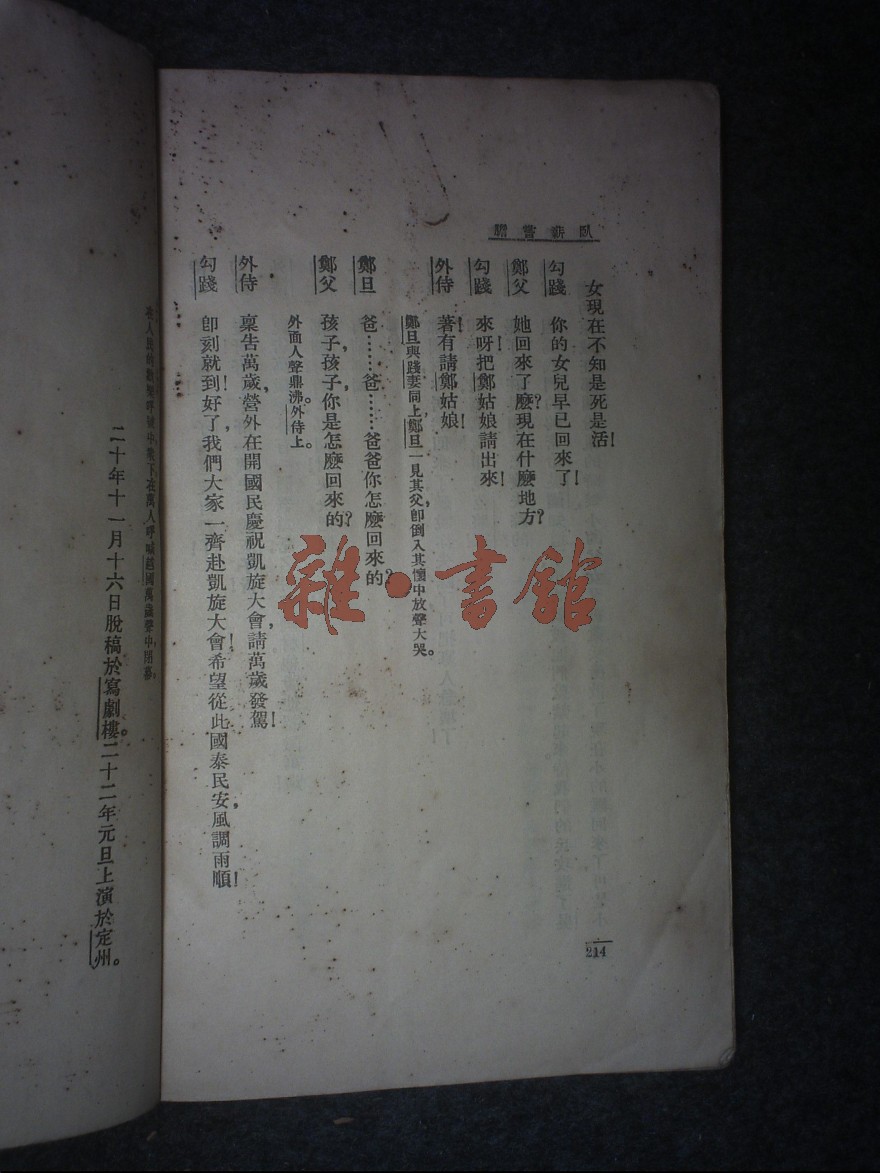 臥薪嘗膽
女現在不知是死是活!
勾踐 你的女兒早已回來了!
鄭父 她回來了麼?現在什麼地方?
勾踐 來呀!把鄭姑娘請出來!
外侍 著!有請鄭姑娘!
鄭旦與踐妻同上,鄭旦一見其父,卽倒入其懷中放聲大哭。
鄭旦 爸……爸……爸爸你怎麼回來的?
鄭父 孩子,孩子,你是怎麼回來的?
外面人聲鼎沸。外侍上。
外侍 稟告萬歲,營外在開國民慶祝凱旋大會,請萬歲發駕!
勾踐 卽刻就到!好了,我們大家一齊赴凱旋大會!希望從此國泰民安,風調雨順!
214
人民的歡聲呼號中下,在萬人呼喊越國萬歲聲中閉幕。
二十年十一月十六日脫稿於寫劇樓。二十二年元旦上演於定州。
雜·書館